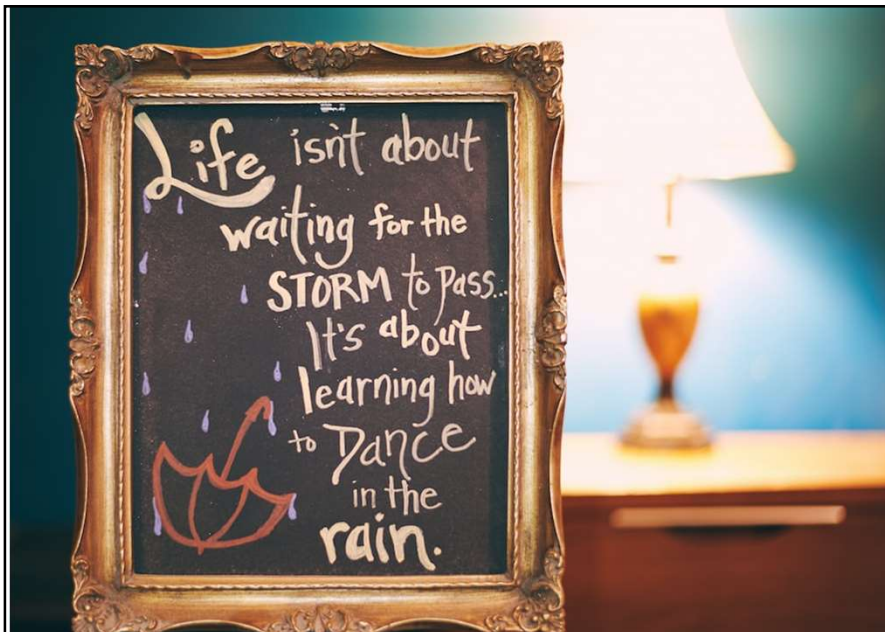 Life isn't about
waiting for the
STORM to pass...
It's about
learning how
to DANCE
in the
rain.